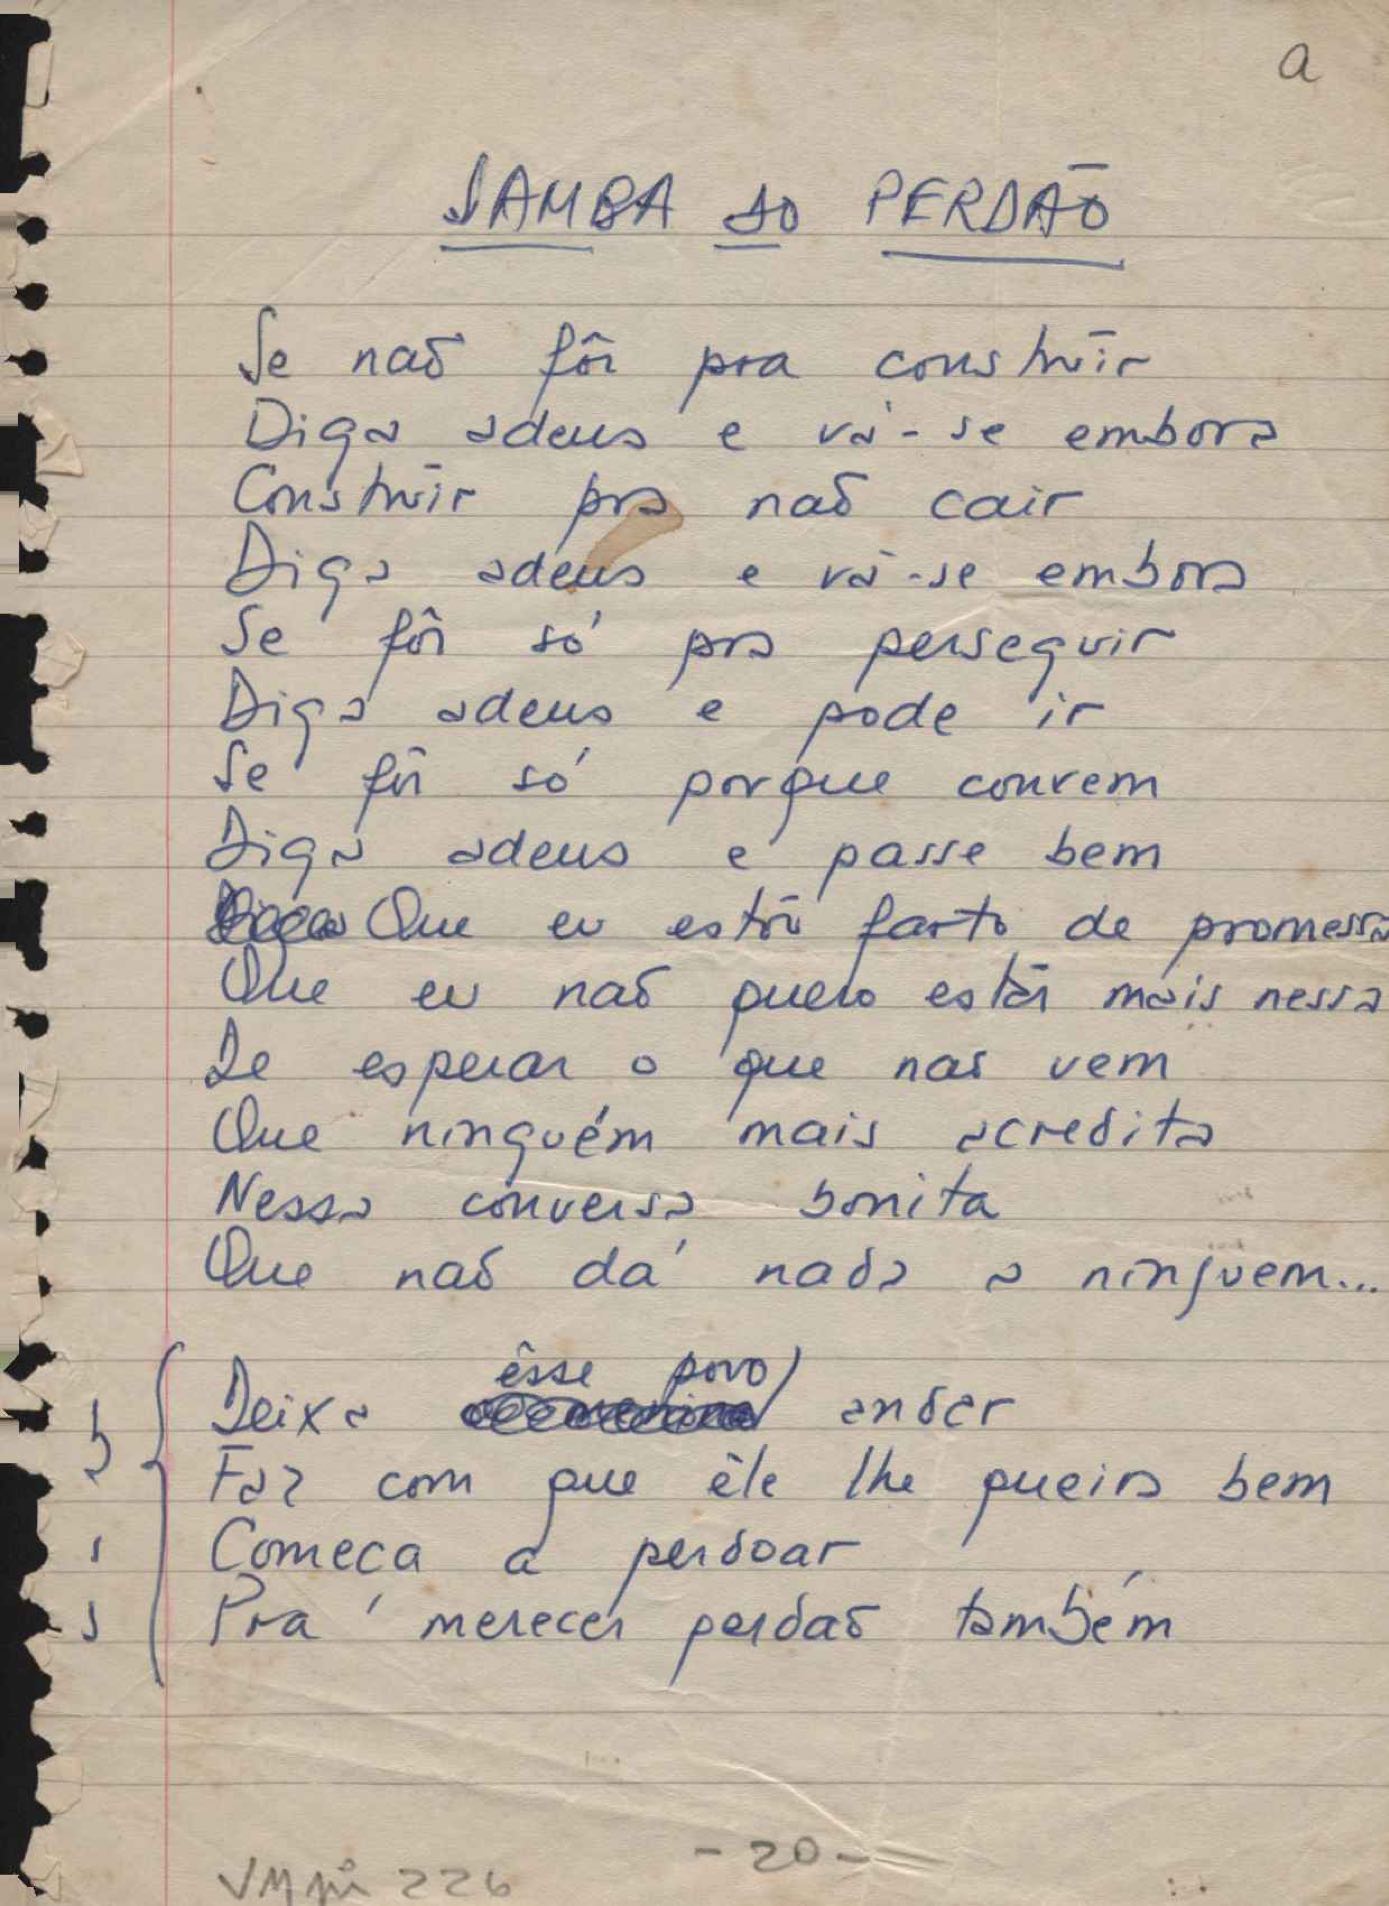 a
SAMBA DO PERDÃO
Se não fôr pra construir
Diga adeus e vá-se embora
Construir pra não cair
Diga adeus e vá-se embora
Se fôr só pra perseguir
Diga adeus e pode ir
Se fôr só porque convem
Diga adeus e passe bem
Que eu estou farto de promessa
Que eu não quero estar mais nessa
De esperar o que não vem
Que ninguém mais acredita
Nessa conversa bonita
Que não dá nada a ninguem...
êsse povo
Deixa andar
Faz com que êle lhe queira bem
Começa a perdoar
Pra merecer perdão também
- 20 -
VMpi 226